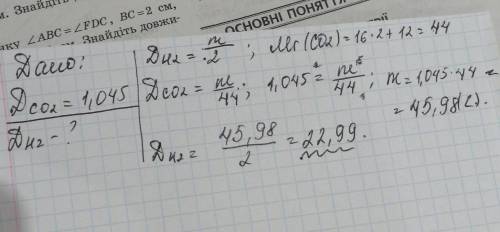 м. Знайдіть
нку ∠ABC = ∠FDC, BC = 2 см,
м. Знайдіть довжи-
ОСНОВНІ ПОНЯТТЯ
Дано:
D CO2 = 1,045
D H2 - ?
D H2 = m/2 ; Mr(CO2) = 16·2+12 = 44
D CO2 = m/44 ; 1,045 = m/44 ; m = 1,045·44 =
= 45,98 (г).
D H2 = 45,98/2 = 22,99.